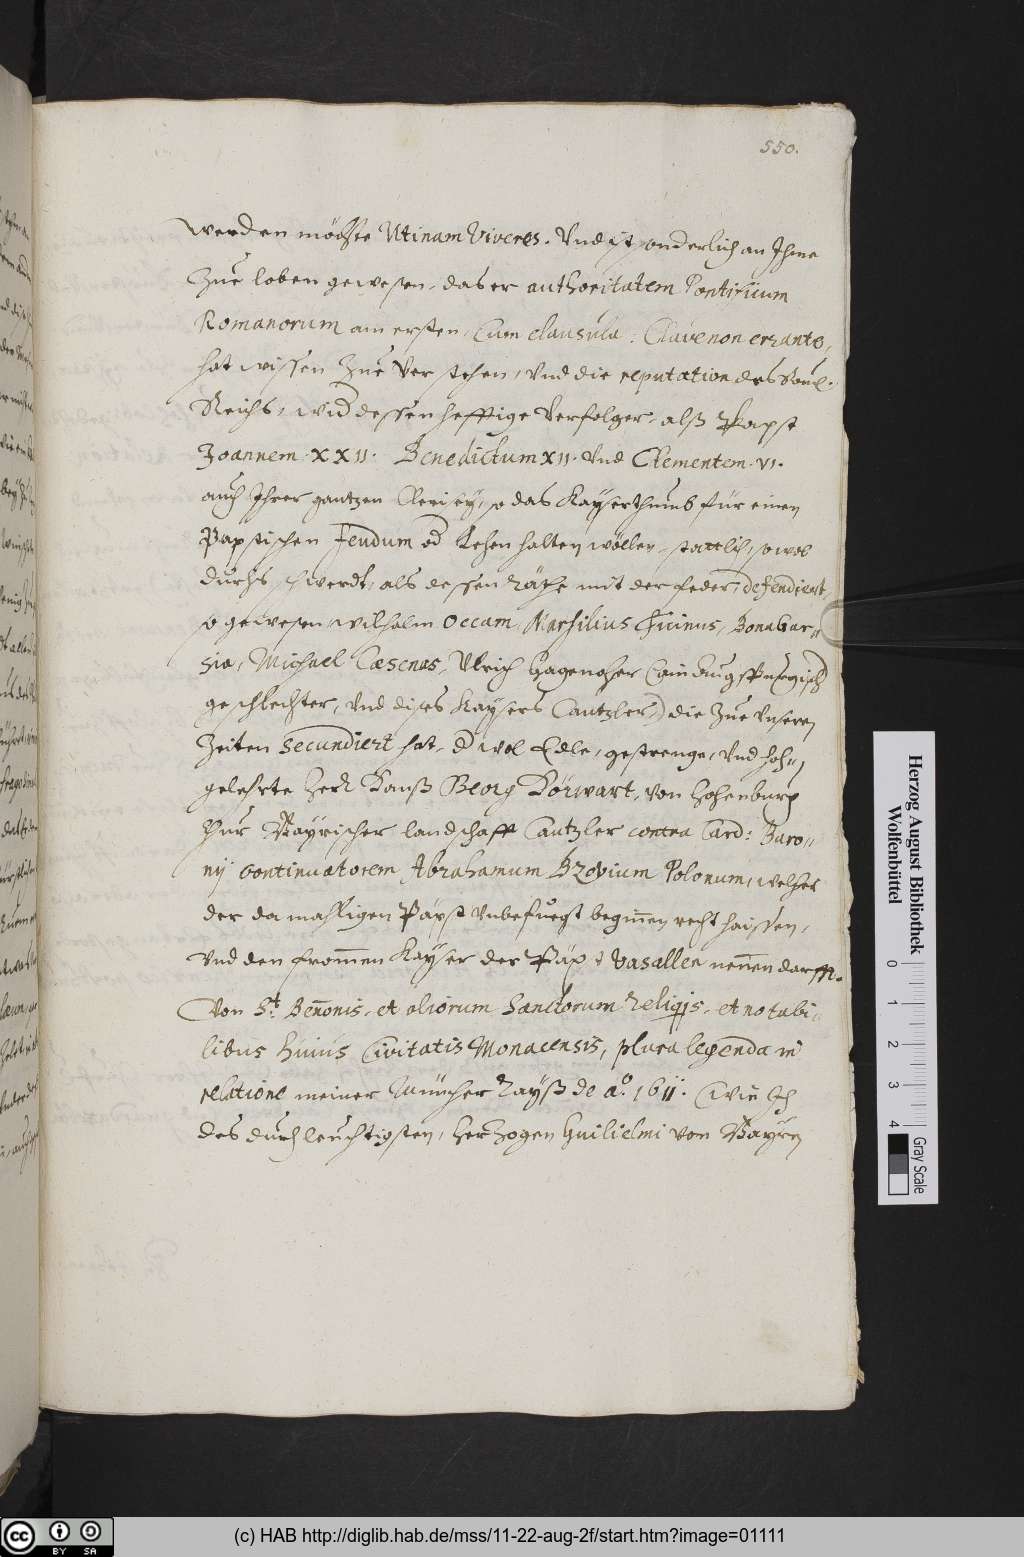 550.
werden möchte Utinam Viveres. Und ist sonderlich an Ihme
Zue loben gewesen, das er authoritatem Pontificum
Romanorum am ersten, Cum clausula: Clave non errante,
hat wissen Zue Verstehen, Und die reputation des Röm:
Reichs, wid dessen hefftige Verfolger, alß Papst
Joannem XXII. Benedictum XII. Und Clementem VI.
auch Ihrer gantzen Clerisey, so das Kayserthumb für einen
Päpstischen Feudum od Lehen halten wöllen, stattlich, sowol
durchs schwerdt, als dessen Räthe mit der feder, defendiert,
so gewesen Wilhalm Occam, Marsilius Ficinus, Bonagar„
sia, Michael Cæsenas, Ulrich Hagenoher (ain Augspurgisch
geschlechter, Und dises Kaysers Cantzler) die Zue Unseren
Zeiten secundiert hat, d wol Edle, gestrenge, Und hoch„
gelehrte Herr Hanß Georg Hörwart, von Hohenburg
Bayrischer landschafft Cantzler contra Card: Baro„
nij continuatorem Abrahamum Bzovium Polonum, welcher
der da mahligen Päpst Unbefuegt beginnen recht haissen,
Und den frommen Kayser der Päpst Vasallen nennen darff.
Von St. Bennonis, et aliorum Sanctorum reliqijs, et notabi
libus huius Civitatis Monacensis, plura legenda in
relatione meiner Müncher Rayß de ao. 1611. (wie Ich
des durchleuchtigsten, Herzogen Guilielmi von Bayrn
Herzog August Bibliothek
Wolfenbüttel
0 1 2 3 4
Gray Scale
cc BY SA
(c) HAB http://diglib.hab.de/mss/11-22-aug-2f/start.htm?image=01111